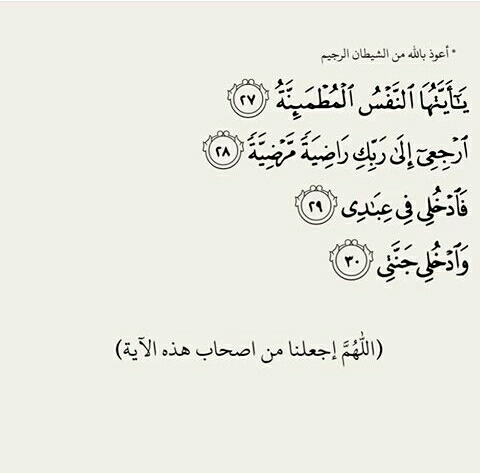 * أعوذ بالله من الشيطان الرجيم
يَـٰٓأَيَّتُهَا ٱلنَّفْسُ ٱلْمُطْمَئِنَّةُ ٢٧
ٱرْجِعِىٓ إِلَىٰ رَبِّكِ رَاضِيَةً مَّرْضِيَّةً ٢٨
فَٱدْخُلِى فِى عِبَـٰدِى ٢٩
وَٱدْخُلِى جَنَّتِى ٣٠
(اللَّهُمَّ إجعلنا من اصحاب هذه الآية)